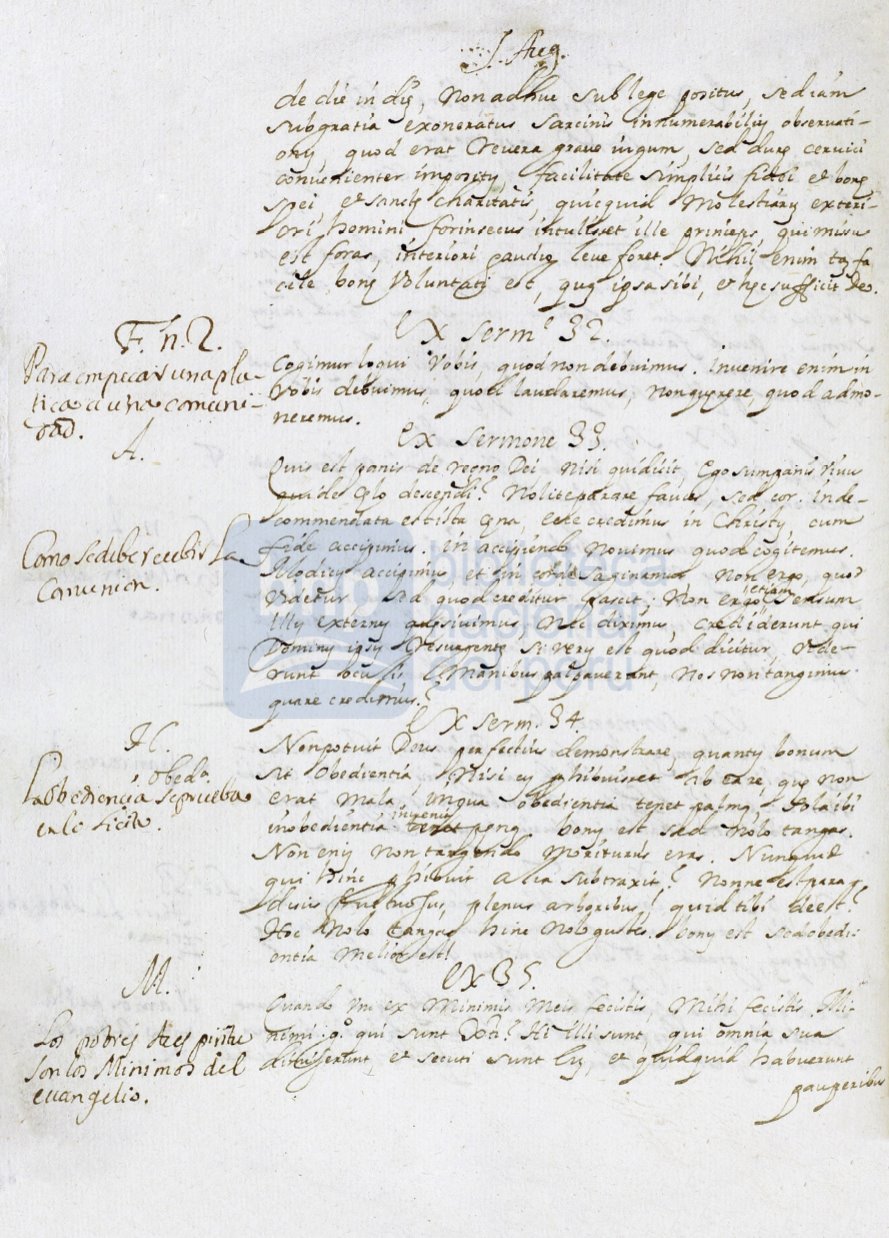 de die in die, non adhuc sub lege positus, sed iam
sub gratia exoneratus sarcinis innumerabiliu observati-
onu, quod erat revera grave iugum, sed dure cervici
convenienter imposity, facilitate simplicis fidei et bone
spei, et sancte charitatis, quicquid molestiaru exteri-
ori homini forinsecus intulisset ille princeps, qui missus
est foras, interiori gaudio leve foret. Nihil enim ta fa-
cile bone voluntati est, qua ipsa sibi, et hec sufficit Deo.
Ex serm.e 32.
F. n. 2.
Para empecar una pla-
tica a una comuni-
dad.
Cogimur loqui vobis, quod non debuimus. Invenire enim in
vobis debuimus, quod laudaremus, non querere, quod admo-
neremus.
Ex sermone 33.
A.
Como se debe recebir La
Comunion.
Quis est panis de regno Dei nisi qui dicit, Ego sum panis vivus
qui de celo descendi? Nolite parare fauces, sed cor. Inde
commendata est ista cena, ecce credimus in Christu cum
fide accipimus. In accipiendo novimus quod cogitemus.
Modicu accipimus et in corde saginamur non ergo, quod
videtur sed quod creditur pascit: Non ergo etiam sensum
illu externu quesivimus, nec diximus, crediderunt qui
Dominu ipsu resurgente si veru est quod dicitur, vide-
runt oculis, manibus palpaverunt, nos non tangimus
quare credimus?
Ex serm. 34.
H.
La obediencia obedª se prueba
en lo licito.
Non potuit Deus perfectius demonstrare, quantu bonum
sit obedientia nisi cu phibuisset ab ea re, que non
erat mala, unqua obedientia tenet palma sola ibi
inobedientia invenit tenet pena. bonu est sed nolo tangas.
Non eni non tangendo moriturus eras. Nunquid
qui hinc phibuit alia subtraxit? Nonne est para-
disus fructuosus, plenus arboribus? quid tibi deest?
Hoc nolo tangas hinc nolo gustes. bonu est sed obedi-
entia melior est!
Ex 35.
M.
Los pobres de espiritu
son los Minimos del
euangelio.
Quando uni ex Minimis Meis fecistis, Mihi fecistis. Mi-
nimi qui sunt Xpti? Hi illi sunt, qui omnia sua
dimiserunt, et secuti sunt eu, et quidquid habuerunt
pauperibus